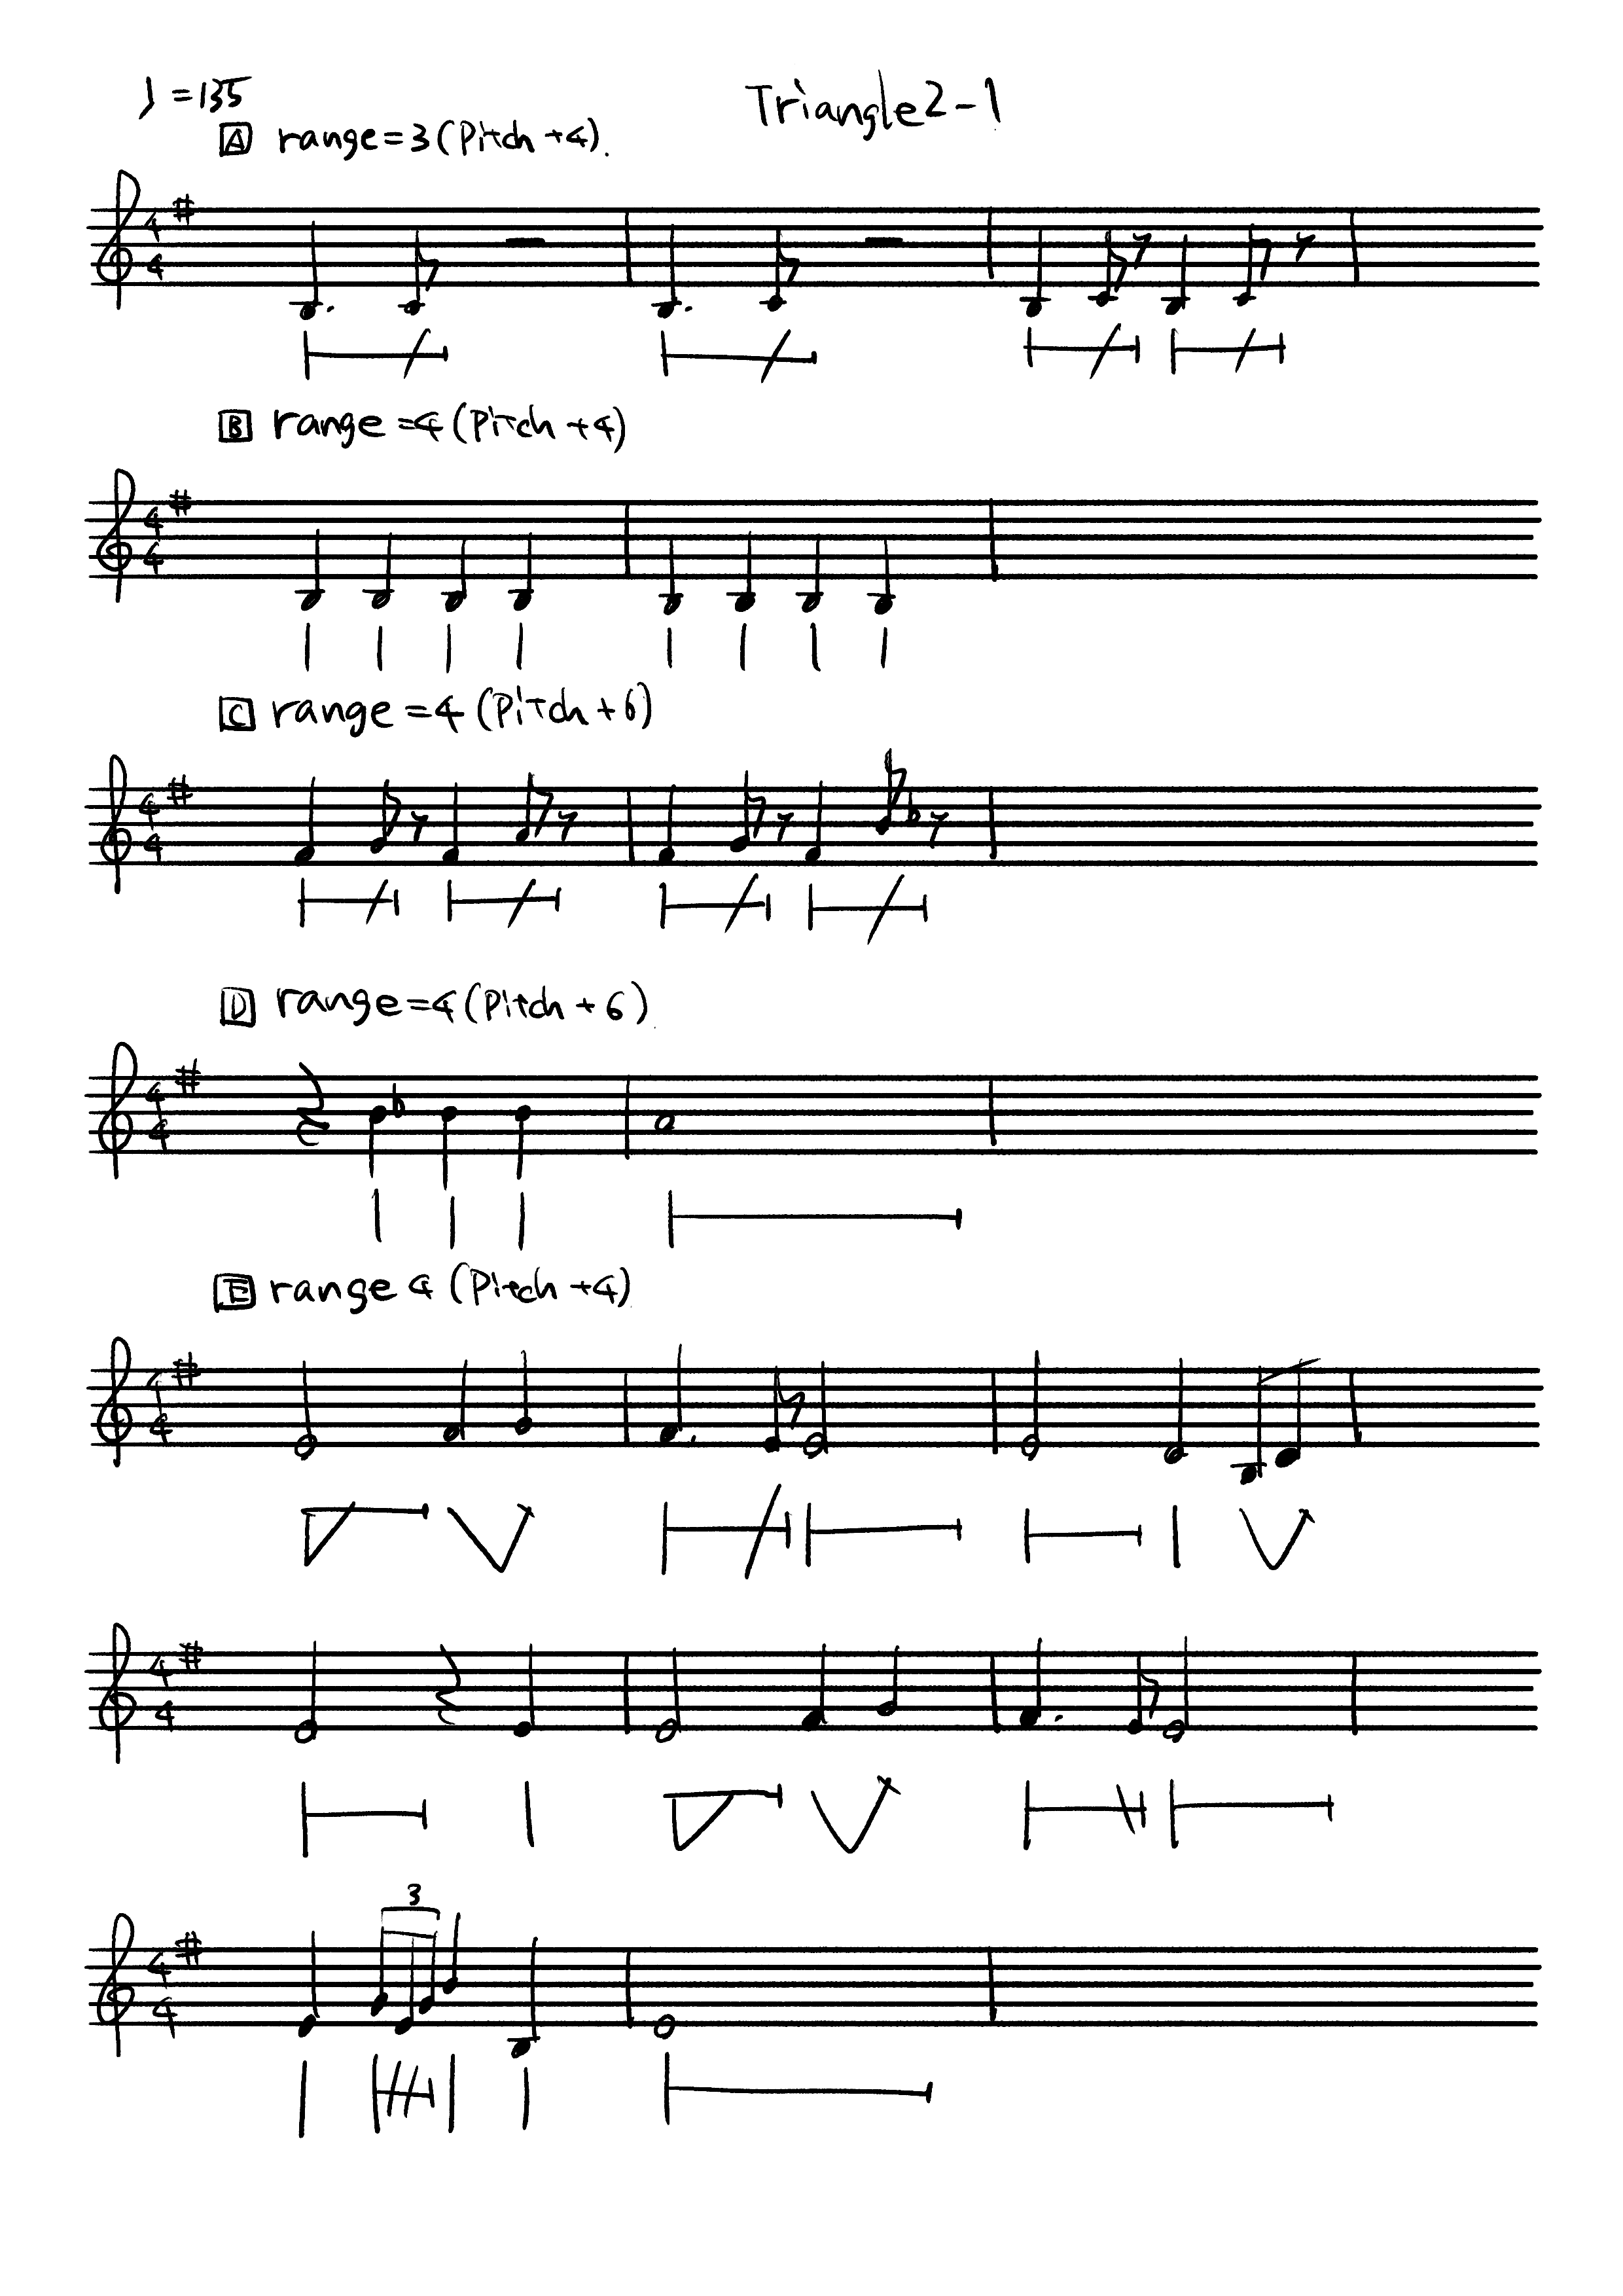 ♩=135
Triangle2-1
A range=3(Pitch+4).
4
4
B range=4(Pitch+4)
4
4
C range=4(Pitch+6)
4
4
D range=4(Pitch+6)
4
4
E range 4 (Pitch+4)
4
4
4
4
3
4
4